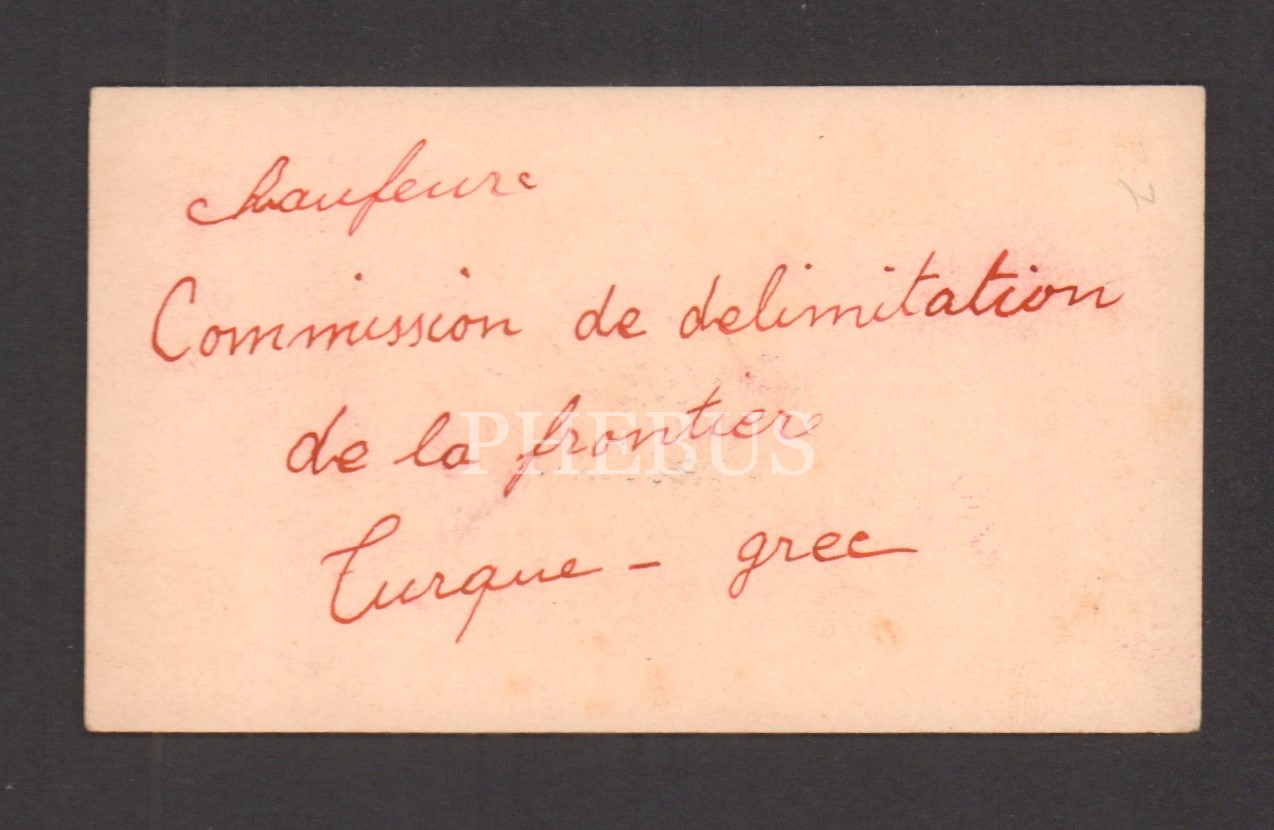 chaufeure
Commission de delimitation
de la frontiere
PHEBUS
Turque - grec